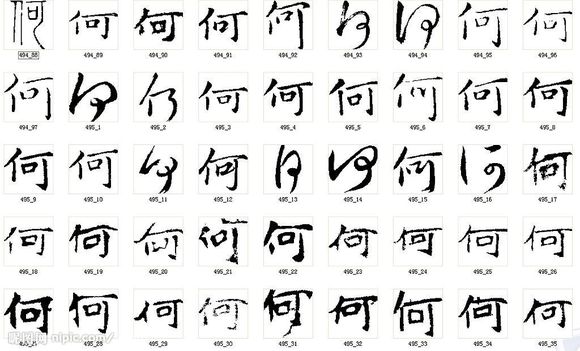 何 何 何 何 何 何 何 何 何
494_88 494_89 494_90 494_91 494_92 494_93 494_94 494_95 494_96
何 何 何 何 何 何 何 何 何
494_97 495_1 495_2 495_3 495_4 495_5 495_6 495_7 495_8
何 何 何 何 何 何 何 何 何
495_9 495_10 495_11 495_12 495_13 495_14 495_15 495_16 495_17
何 何 何 何 何 何 何 何 何
495_18 495_19 495_20 495_21 495_22 495_23 495_24 495_25 495_26
何 何 何 何 何 何 何 何 何
495_28 495_29 495_30 495_31 495_32 495_33 495_34 495_35
昵图网 nipic.com/